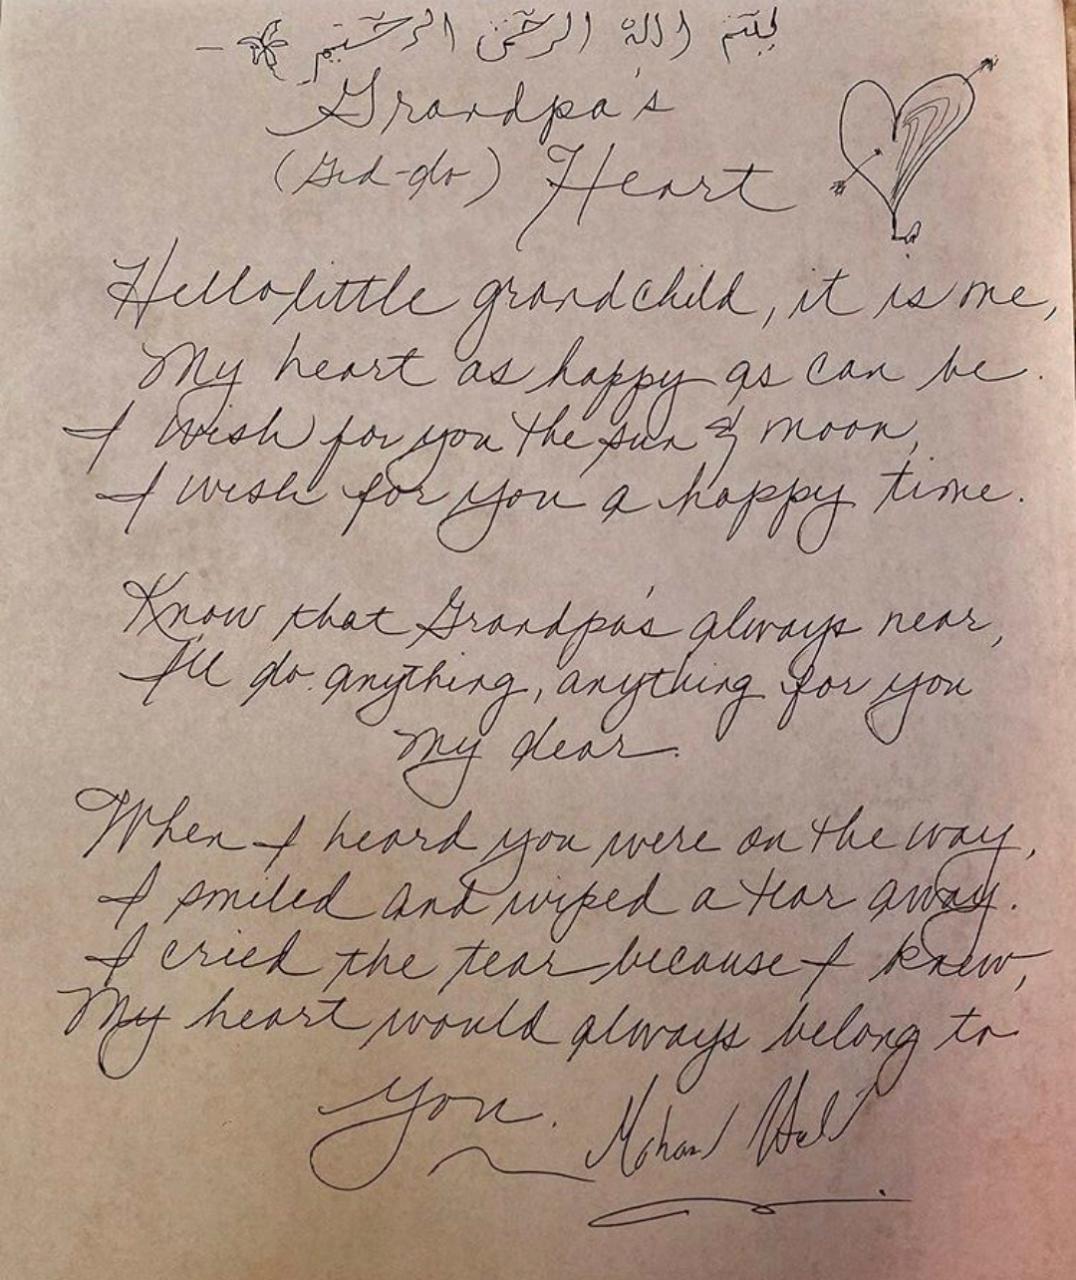 بسم الله الرحمن الرحيم
Grandpa's
(Gid-do) Heart
Hello little grandchild, it is me,
My heart as happy as can be.
I wish for you the sun & moon,
I wish for you a happy time.
Know that Grandpa's always near,
I'll do anything, anything for you
My dear.
When I heard you were on the way,
I smiled and wiped a tear away.
I cried the tear because I knew,
My heart would always belong to
you.